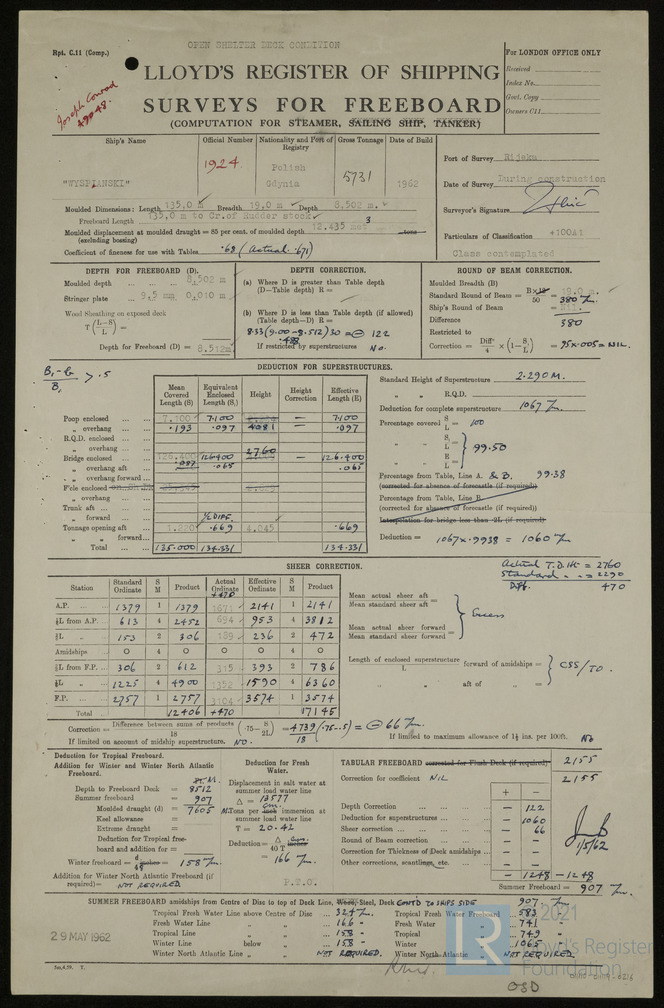 OPEN SHELTER DECK CONDITION
Rpt. C.11 (Comp.)
For LONDON OFFICE ONLY
LLOYD'S REGISTER OF SHIPPING
Received
Index No.
Govt. Copy
Owners C11
Joseph Conrad
SURVEYS FOR FREEBOARD
(COMPUTATION FOR STEAMER, SAILING SHIP, TANKER)
Ship's Name
Official Number
Nationality and Port of Registry
Gross Tonnage
Date of Build
"WYSPIANSKI"
1924.
Polish
Gdynia
5731
1962
Port of Survey Rijeka
Date of Survey During construction
Surveyor's Signature
Particulars of Classification +100A1
Class contemplated
Moulded Dimensions: Length 135,0 m Breadth 19,0 m Depth 8,502 m.
Freeboard Length 135,0 m to Cr.of Rudder stock
Moulded displacement at moulded draught = 85 per cent. of moulded depth 12.435 3 tons
(excluding bossing)
Coefficient of fineness for use with Tables .68 (Actual .671)
DEPTH FOR FREEBOARD (D).
Moulded depth 8,502 m
Stringer plate 9,5 mm 0,010 m
Wood Sheathing on exposed deck
T (L–S/L) =
Depth for Freeboard (D) = 8.512m
DEPTH CORRECTION.
(a) Where D is greater than Table depth
(D—Table depth) R =
(b) Where D is less than Table depth (if allowed)
(Table depth—D) R =
8.33 (9.00 - 8.512) 30 = ⊖ 122
.488
If restricted by superstructures No.
ROUND OF BEAM CORRECTION.
Moulded Breadth (B) 19,0 m
Standard Round of Beam = B×12/50 = 380
Ship's Round of Beam = Nil
Difference 380
Restricted to
Correction = Diffce/4 × (1–S₁/L) = 95×.005= NIL.
B₁-G/B₁ > .5
DEDUCTION FOR SUPERSTRUCTURES.
Mean Covered Length (S)
Equivalent Enclosed Length (S₁)
Height
Height Correction
Effective Length (E)
Poop enclosed 7,100 7.100 — 7.100
„ overhang .193 .097 4081 — .097
R.Q.D. enclosed
„ overhang
Bridge enclosed 126.400 126.400 2760 — 126.400
„ overhang aft .097 .065 .065
„ overhang forward
F'cle enclosed
„ overhang
Trunk aft
„ forward ½ DIFF.
Tonnage opening aft 1.220 .669 4,045 .669
„ „ forward
Total 135.000 134.331 134.331
Standard Height of Superstructure 2.290 M.
„ „ R.Q.D.
Deduction for complete superstructure 1067
Percentage covered S/L = 100
„ „ S₁/L =
„ „ E/L = 99.50
Percentage from Table, Line A. & B. 99.38
(corrected for absence of forecastle (if required))
Percentage from Table, Line B.
(corrected for absence of forecastle (if required))
Interpolation for bridge less than ·2L (if required)
Deduction = 1067 × .9938 = 1060
SHEER CORRECTION.
Actual T.D.Ht = 2760
Standard „ = 2290
Diff. 470
Station
Standard Ordinate
S M
Product
Actual Ordinate +470
Effective Ordinate
S M
Product
A.P. 1379 1 1379 1671 2141 1 2141
⅙L from A.P. 613 4 2452 694 953 4 3812
⅓L „ 153 2 306 189 236 2 472
Amidships 0 4 0 0 0 4 0
⅓L from F.P. 306 2 612 315 393 2 786
⅙L „ 1225 4 4900 1352 1590 4 6360
F.P. 2757 1 2757 3104 3574 1 3574
Total 12406 +470 17145
Mean actual sheer aft =
Mean standard sheer aft
Mean actual sheer forward =
Mean standard sheer forward
Excess
Length of enclosed superstructure/L forward of amidships =
„ „ aft of „ =
CSS/TO.
Correction = Difference between sums of products/18 (·75–S/2L) = 4739/18 (.75-.5) = ⊖ 66
If limited on account of midship superstructure. NO.
If limited to maximum allowance of 1½ ins. per 100ft. No
Deduction for Tropical Freeboard.
Addition for Winter and Winter North Atlantic Freeboard.
Depth to Freeboard Deck = 8512
Summer freeboard = 907
Moulded draught (d) = 7605
Keel allowance =
Extreme draught =
Deduction for Tropical freeboard and addition for =
Winter freeboard = d/48 = 158
Addition for Winter North Atlantic Freeboard (if required) = NOT REQUIRED
Deduction for Fresh Water.
Displacement in salt water at summer load water line
Δ = 13577
M.Tons per cm. immersion at summer load water line
T = 20.42
Deduction = Δ/40 T
= 166
P.T.O.
TABULAR FREEBOARD corrected for Flush Deck (if required) 2155
Correction for coefficient NIL 2155
+ −
Depth Correction — 122
Deduction for superstructures — 1060
Sheer correction — 66
Round of Beam correction — —
Correction for Thickness of Deck amidships — —
Other corrections, scantlings, etc. — —
— 1248 - 1248
Summer Freeboard = 907
1/5/62
SUMMER FREEBOARD amidships from Centre of Disc to top of Deck Line, Wood, Steel, Deck CONT'D TO SHIPS SIDE 907
Tropical Fresh Water Line above Centre of Disc 324
Fresh Water Line „ „ 166
Tropical Line „ „ 158
Winter Line below „ 158
Winter North Atlantic Line „ „ NOT REQUIRED.
Tropical Fresh Water Freeboard 583
Fresh Water „ 741
Tropical „ 749
Winter „ 1065
Winter North Atlantic „ NOT REQUIRED.
29 MAY 1962
5m,4.59. T.
LR
2021
Lloyd's Register
Foundation
OSD